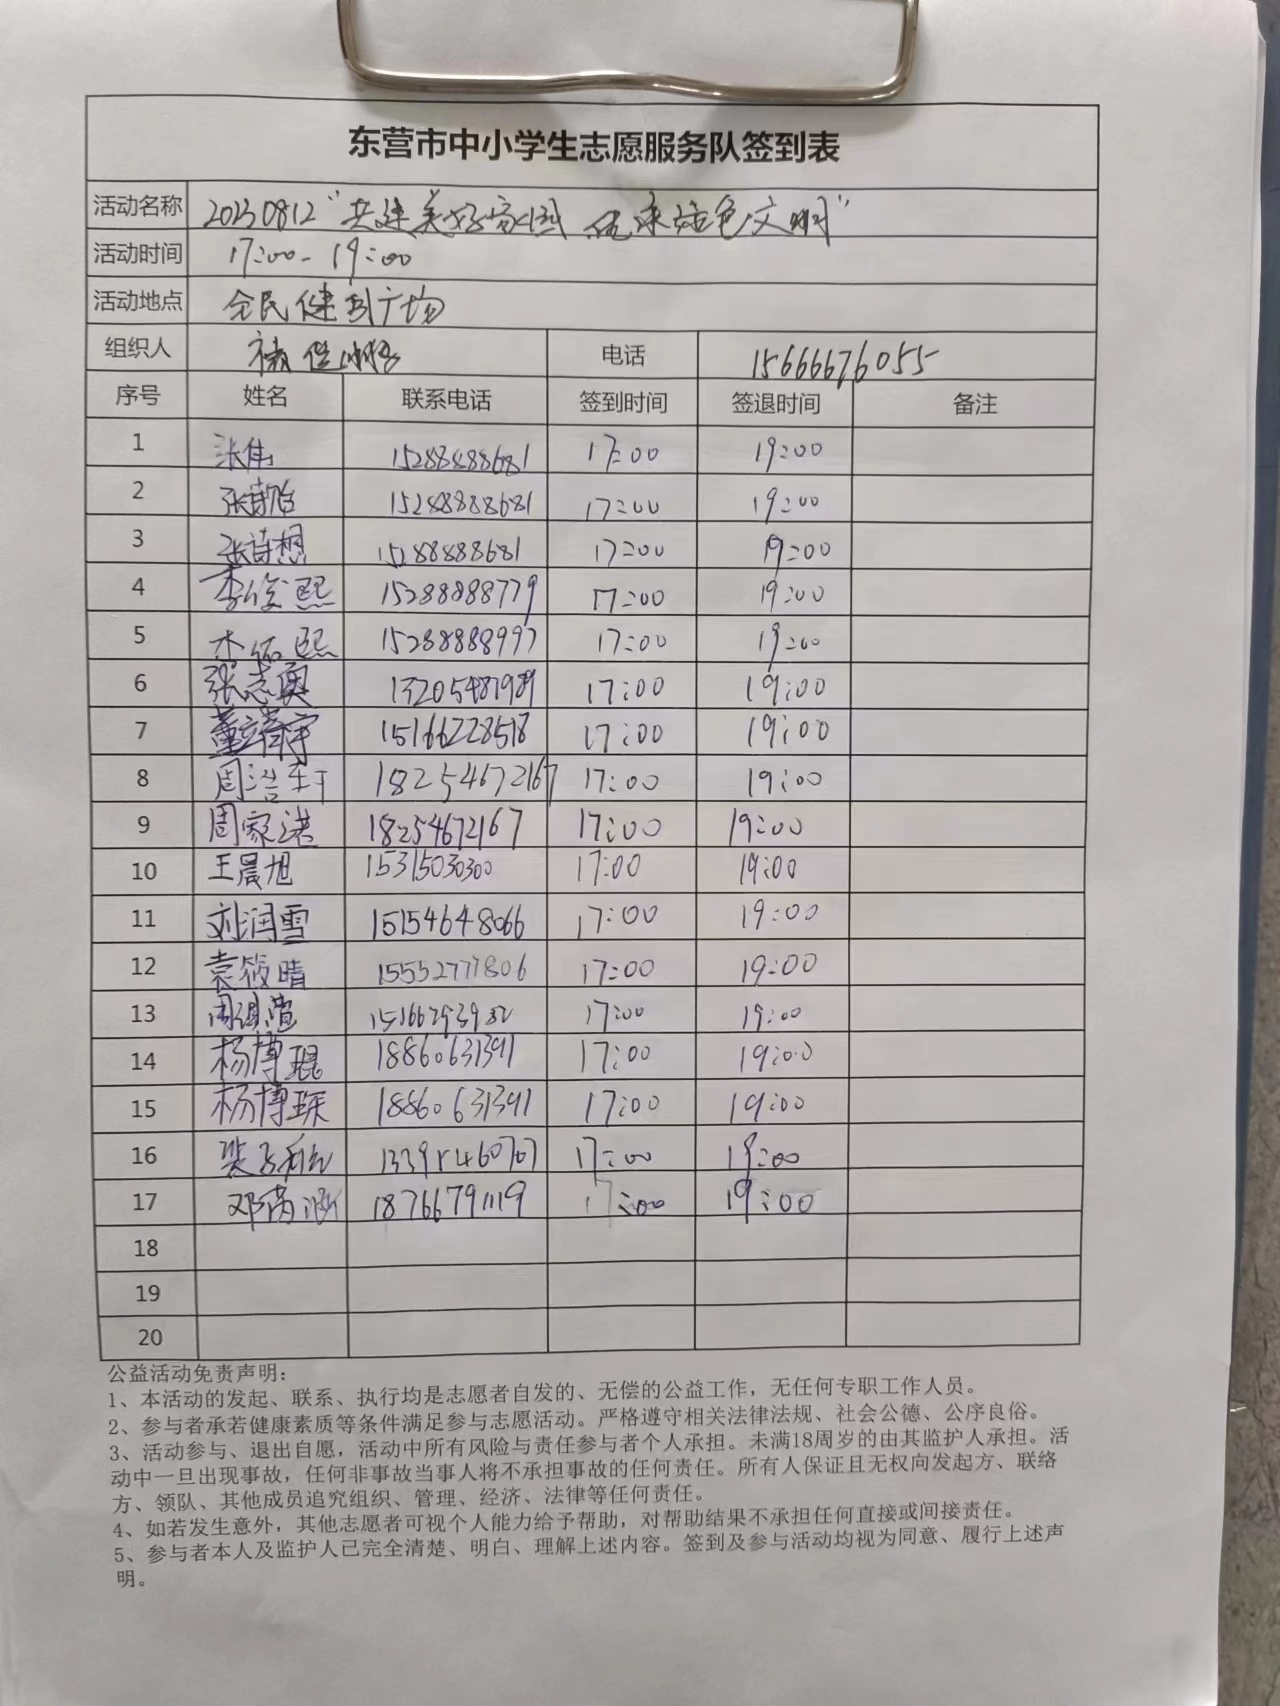 东营市中小学生志愿服务队签到表
活动名称 20230812“共建美好家园 传承绿色文明”
活动时间 17:00-19:00
活动地点 全民健身广场
组织人 电话 15666676055
序号 姓名 联系电话 签到时间 签退时间 备注
1 张伟 15288888681 17:00 19:00
2 15288888681 17:00 19:00
3 张诗想 1528888681 17:00 19:00
4 李俊熙 15288888779 17:00 19:00
5 李佑熙 15288888997 17:00 19:00
6 张志奥 13205481989 17:00 19:00
7 15166228518 17:00 19:00
8 周浩轩 18254672167 17:00 19:00
9 周家淇 18254672167 17:00 19:00
10 王晨旭 15315030300 17:00 19:00
11 刘润雪 15154648066 17:00 19:00
12 袁筱晴 15552777806 17:00 19:00
13 15166293982 17:00 19:00
14 杨博琨 18860631391 17:00 19:00
15 杨博琛 18860631391 17:00 19:00
16 13395460707 17:00 19:00
17 18766791119 17:00 19:00
18
19
20
公益活动免责声明：
1、本活动的发起、联系、执行均是志愿者自发的、无偿的公益工作，无任何专职工作人员。
2、参与者承若健康素质等条件满足参与志愿活动。严格遵守相关法律法规、社会公德、公序良俗。
3、活动参与、退出自愿，活动中所有风险与责任参与者个人承担。未满18周岁的由其监护人承担。活
动中一旦出现事故，任何非事故当事人将不承担事故的任何责任。所有人保证且无权向发起方、联络
方、领队、其他成员追究组织、管理、经济、法律等任何责任。
4、如若发生意外，其他志愿者可视个人能力给予帮助，对帮助结果不承担任何直接或间接责任。
5、参与者本人及监护人已完全清楚、明白、理解上述内容。签到及参与活动均视为同意、履行上述声
明。